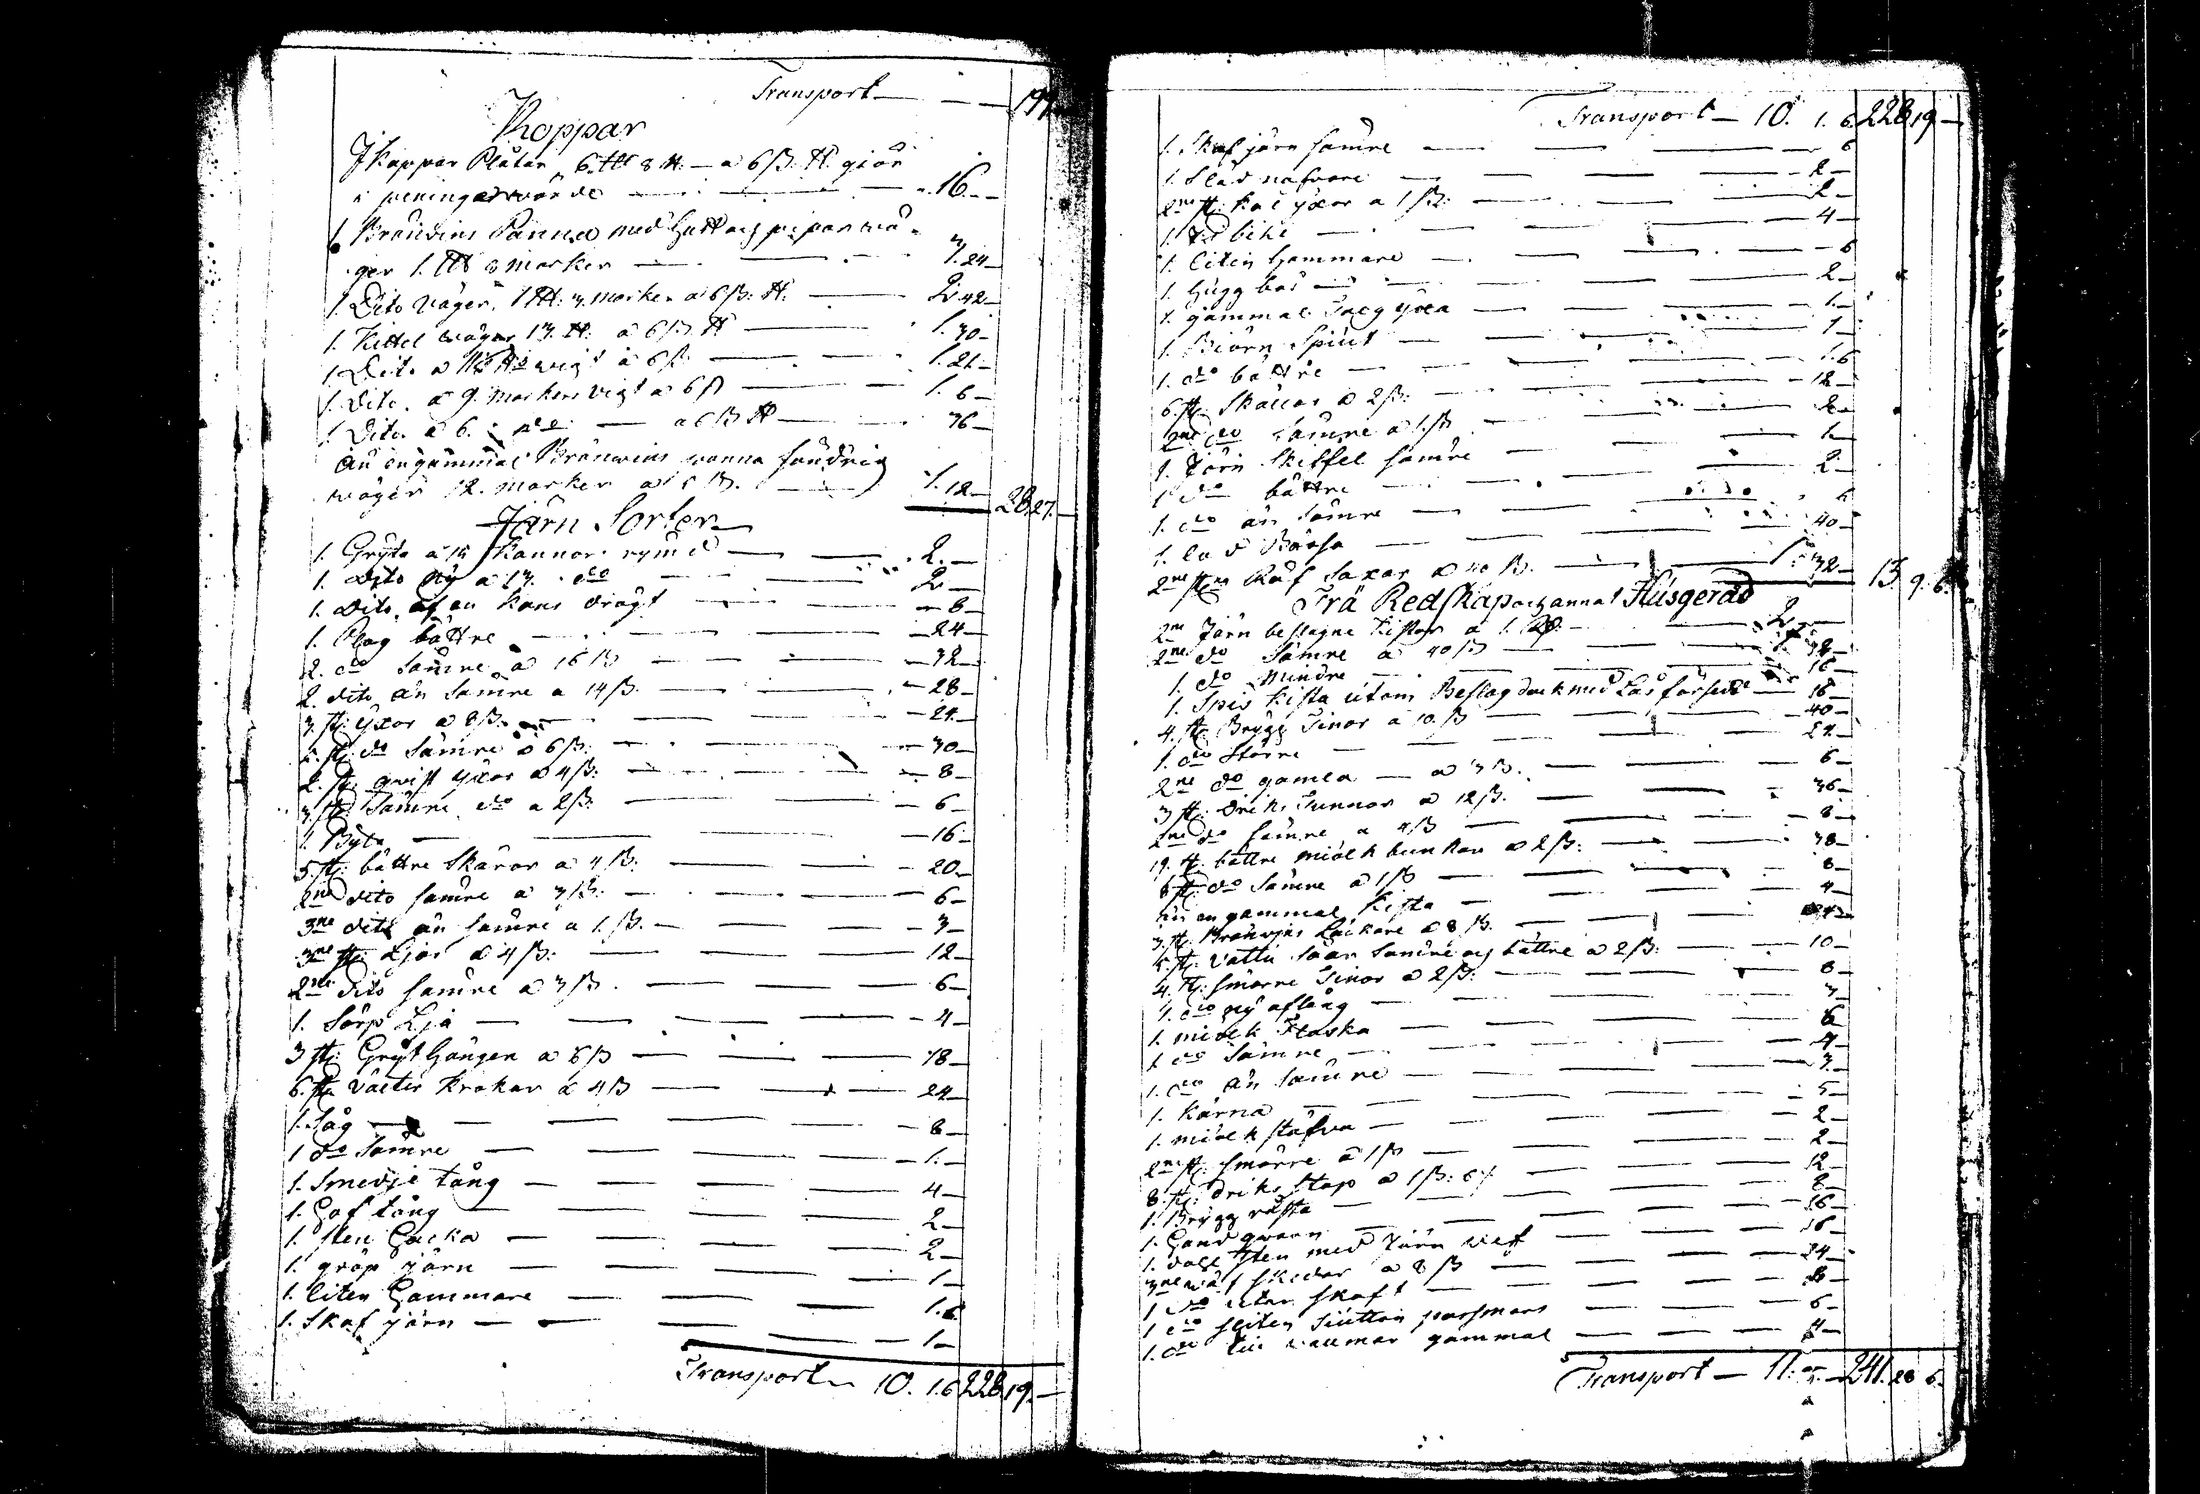 Transport — — 19
Koppar
J Koppar Plåtar 6 ℔ 8 ℔ — a 6 ß ℔ giör
i peningar wärde — 16 —
1 Bränvins Panna med Hatt och pipar wä-
ger 1. ℔ 8 marker — 3. 24 —
1 Dito väger 1 ℔: 3 marker a 6 ß: ℔: — 2. 42 —
1. Kittel wäger 13 ℔: a 6 ß ℔ — 1. 30 —
1 Dito a wigt a 6 ß — 1. 21 —
1. Dito. a 9. markers vigt a 6 ß — 1. 6 —
1 Dito a 6. do — a 6 ß ℔ — 36 —
än en gammal Bränwins panna söndrig
wäger 12. marker a 5 ß. — 1. 12 — 28 27. —
Järn Sorter
1. Gryta a 14 Kannor rymd — 2. —
1. Dito Ny a 13. do — 2 —
1. Dito, af en Kans drägt — 8 —
1. Plog bättre — 24 —
2. do Sämre a 16 ß — 32 —
2. dito än Sämre a 14 ß. — 28 —
3. st: Yxor a 8 ß. — 24 —
5. st: do Sämre a 6 ß: — 30 —
2. st: qvist yxor a 4 ß: — 8 —
3 st: Sämre do a 2 ß. — 6 —
1. Byta — 16 —
5. st: bättre Skäror a 4 ß: — 20 —
2ne dito sämre a 3 ß: — 6 —
3ne dito än sämre a 1. ß. — 3 —
3ne st: Ljor a 4 ß: — 12 —
2ne dito sämre a 3 ß. — 6 —
1. Sörp Lja — 4 —
3 st: Gryt Hängen a 6 ß — 18 —
6. st: Krokar a 4 ß — 24 —
1. Såg — 8 —
1 do Sämre — 1. —
1. Smedje tång — 4 —
1. Hof tång — 2 —
1. Sten Hacka — 2 —
1. gröp järn — 1 —
1. liten Hammare — 1. 6
1. Skaf järn — 1 —
Transport — 10. 1. 6 228. 19. —
Transport — 10. 1. 6. 228 19 —
1. Skaf järn sämre — 6
1. Slåd nafvare — 2 —
2ne st: yxor a 1 ß: — 2 —
1. — 4 —
1. liten Hammare — 6
1. Hugg — 2 —
1. gammal Täg yxa — 1. —
1. Biörn Spiut — 1 —
1. do bättre — 1. 6
6. st: Skällor a 2 ß: — 12 —
2ne do Sämre a 1. ß — 2 —
1. Järn Skiffel sämre — 1. —
1 do bättre — 2 —
1. do än Sämre
1. Lod Bössa — 40 —
2ne st: Räf Saxar a 40 ß. — 1. 32 — 13. 9. 6.
Trä Redskap och annat Husgeråd
2ne Järn beslagne Kistor a 1. — 2 —
2ne do Sämre a 40 ß — 1. 32 —
1. do Mindre — 16 —
1. Spis Kista utom Beslag dock med Lås försedd — 16 —
4. st: Brygg Tinor a 10. ß — 40 —
1. do Större — 24 —
2ne do gamla — a 3 ß. — 6 —
3 st: Driks Tunnor a 12 ß. — 36 —
2ne do sämre a 4 ß — 8 —
19. st: bättre miölk bunkar a 2 ß: — 38 —
8 st: do Sämre a 1 ß — 8 —
än en gammal Kista — 4 —
3. st: Bränvins Lackare a 8 ß. — 24 —
5. st: vattu Såar Sämre och bättre a 2 ß: — 10 —
4. st: smärre Tinor a 2 ß: — 8 —
1. do ny aflång — 3 —
1. miölk Flaska — 6 —
1. do Sämre — 4 —
1. do än Sämre — 3 —
1. Kärna — 5 —
1. miölk stäfva — 2 —
2ne st: smärre a 1 ß — 2 —
8. st: driks Stop a 1 ß: 6 — 12 —
1. Brygg rosta — 8 —
1. Hand qwarn — 16 —
1. Sten med Järn vef — 16 —
3ne skedar a 8 ß — 24 —
1 do utan skaft — 8 —
1 do sliten
1. do gammal — 4 —
Transport — 11. — 241. 28 6.